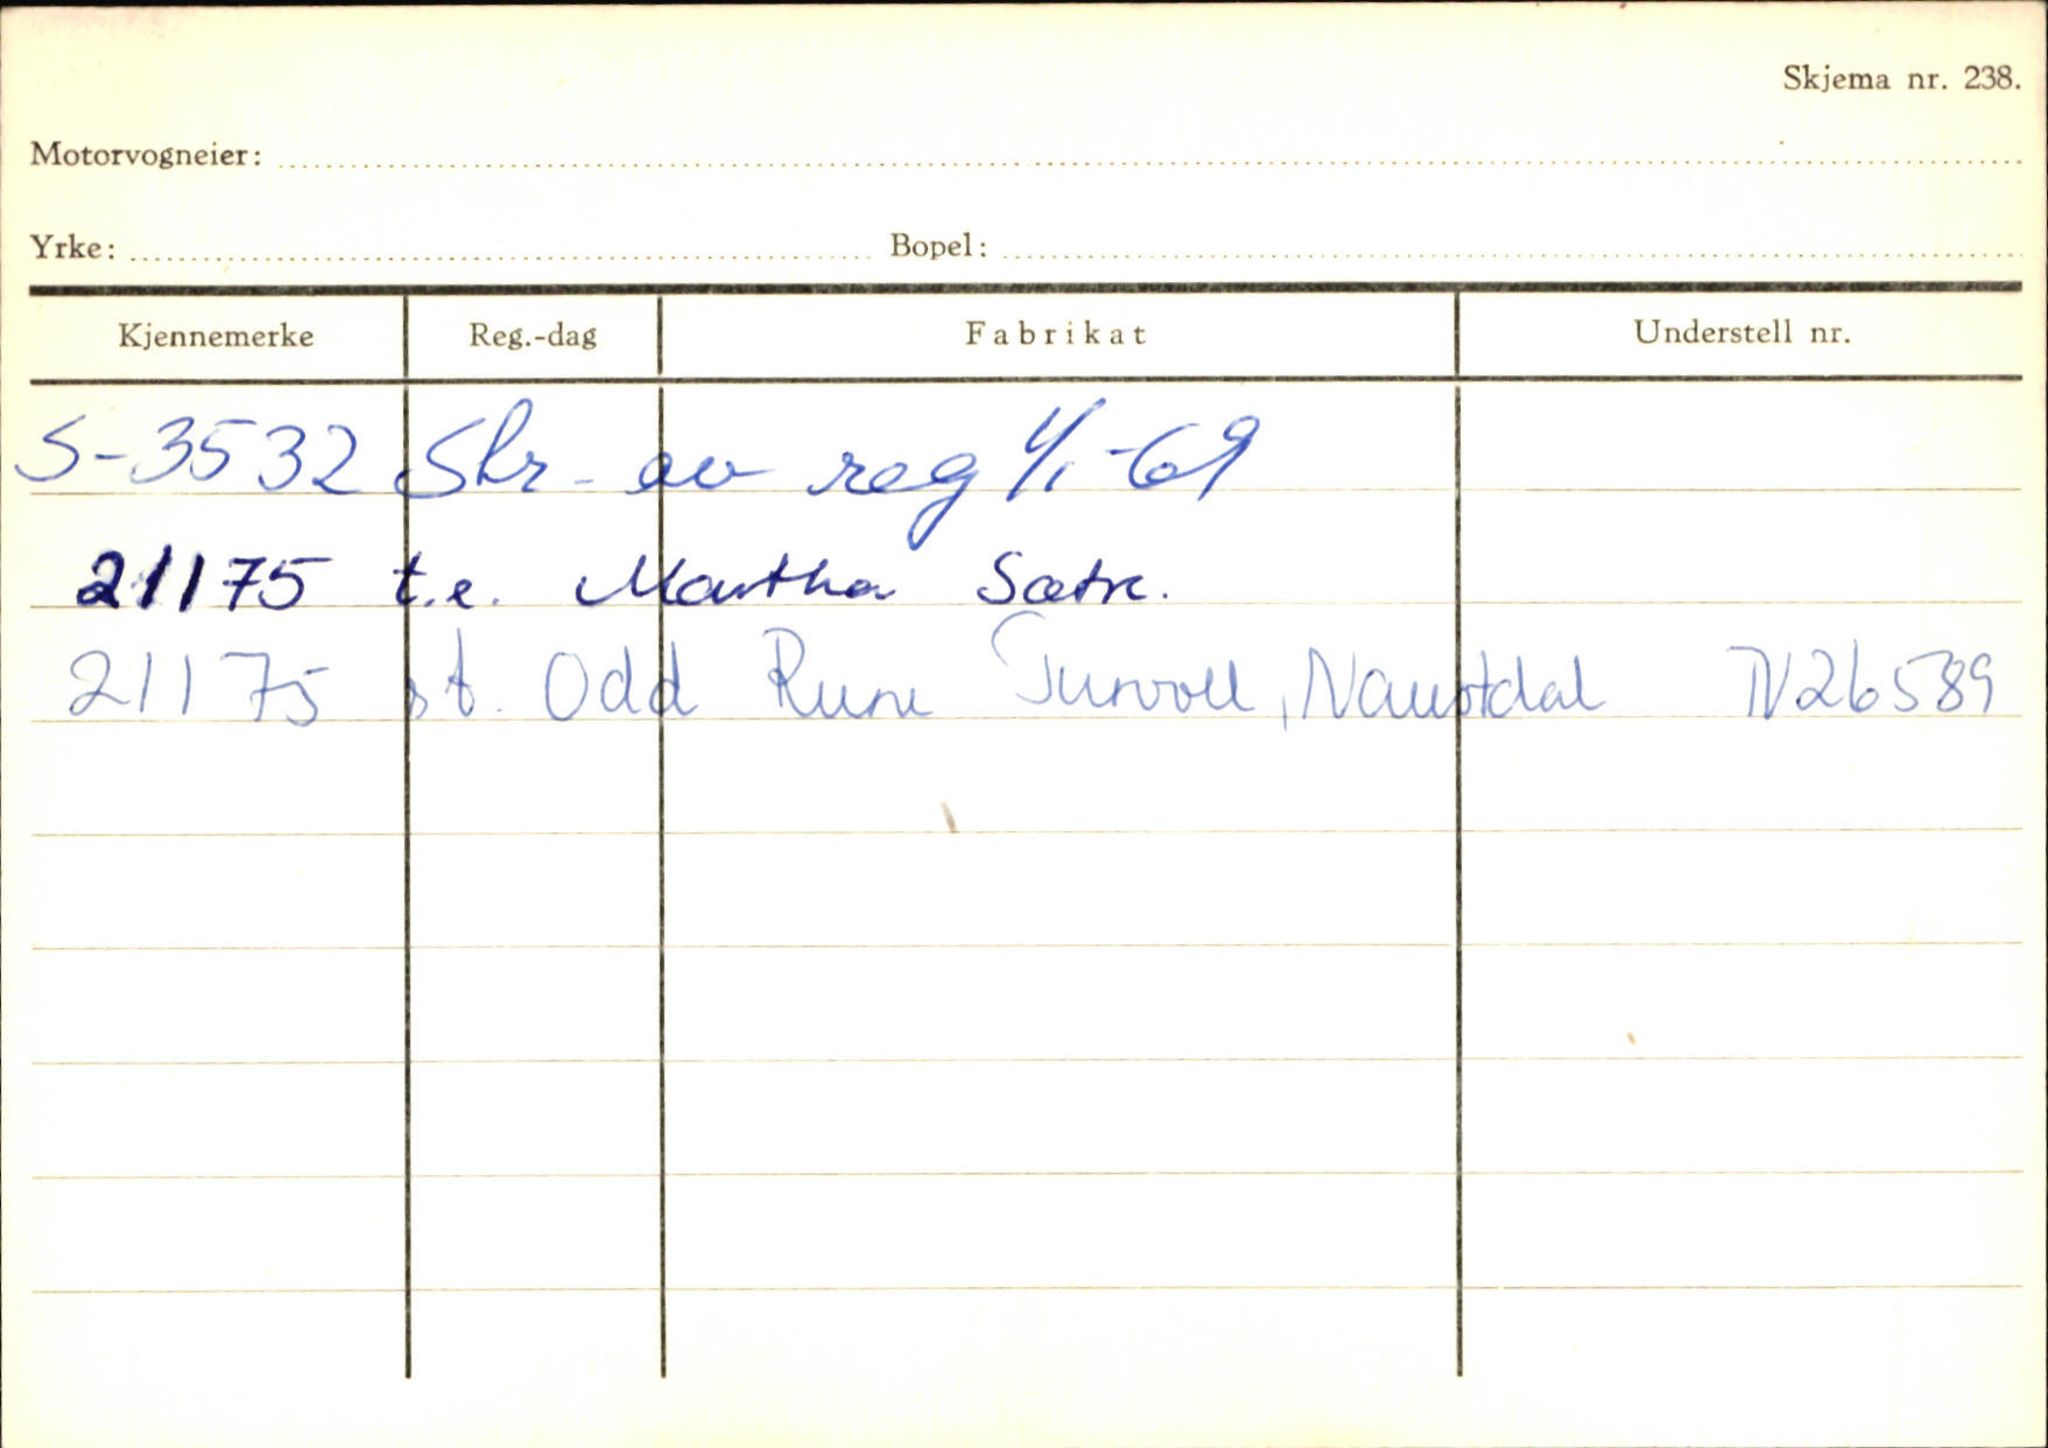 Skjema nr. 238.
Motorvogneier:
Yrke: Bopel:
Kjennemerke Reg.-dag Fabrikat Understell nr.
S-3532 Skr. av reg 4/1-69
21175 t.e. Martha Sætre.
21175 st. Odd Rune Turvoll, Naustdal TV26589